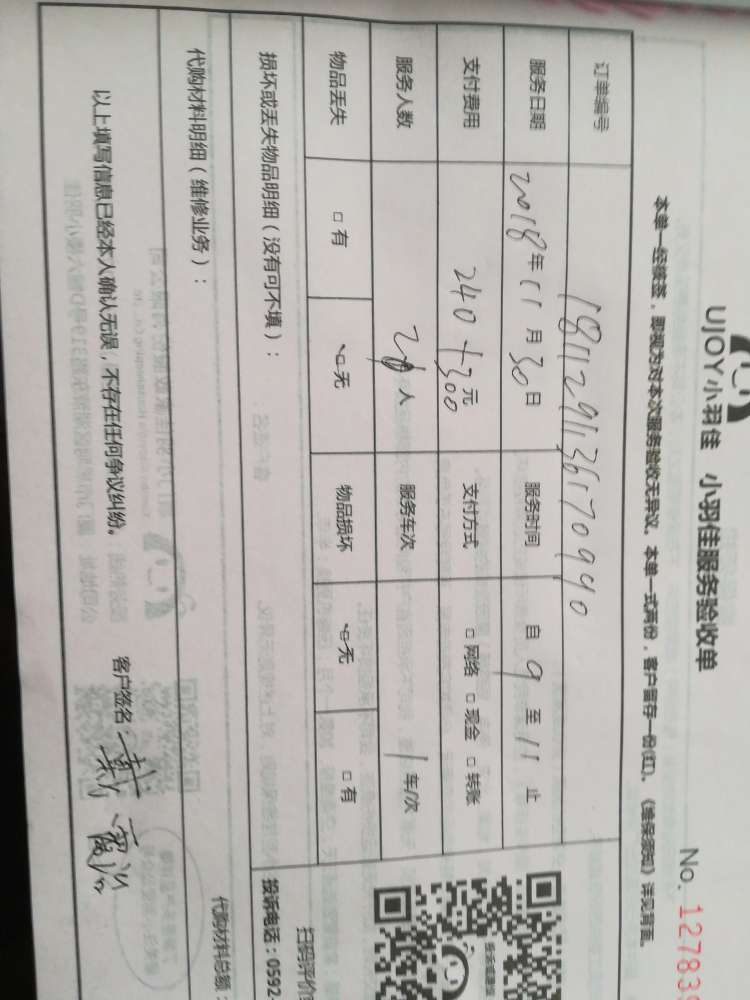 UJOY小羽佳 小羽佳服务验收单
No. 127839
本单一经接签，即视为对本次服务验收无异议。本单一式两份，客户留存一份(红)。《维保须知》详见背面。
订单编号 1811291136170990
服务日期 2018年11月30日 服务时间 自9至11止
支付费用 240+300元 支付方式 □网络 □现金 □转账
服务人数 2人 服务车次 1车/次
物品丢失 □有 □无 物品损坏 □无 □有
损坏或丢失物品明细（没有可不填）：
扫码评价
投诉电话：0592-
代购材料明细（维修业务）：
代购材料总额：
以上填写信息已经本人确认无误，不存在任何争议纠纷。 客户签名：戴